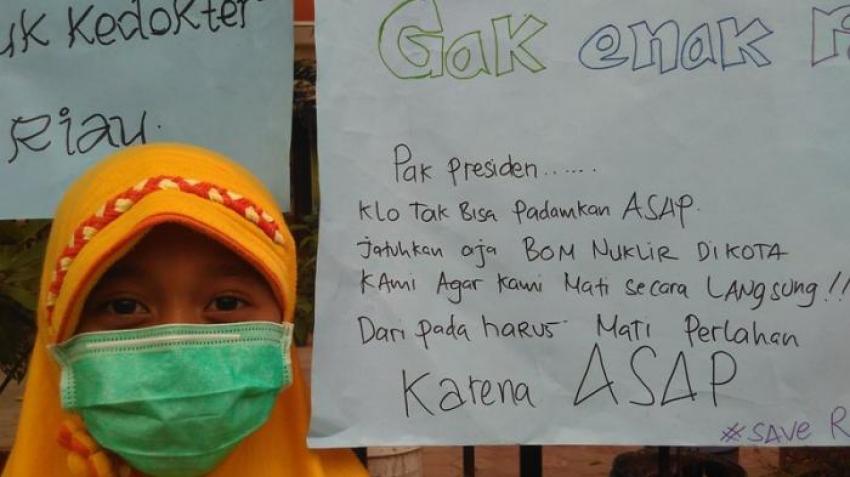 uk Kedokter
Riau.
Gak enak
Pak presiden......
Klo Tak Bisa Padamkan ASAP.
jatuhkan aja BOM NUKLIR DIKOTA
KAmi Agar Kami Mati Secara LANGSUNG!!
Dari pada harus Mati Perlahan
Karena ASAP
#SAVE R